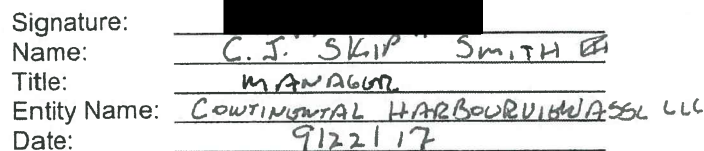 Signature:
Name: C. J. "SKIP" SMITH
Title: MANAGER
Entity Name: CONTINENTAL HARBOURVIEW ASSC LLC
Date: 9/22/17